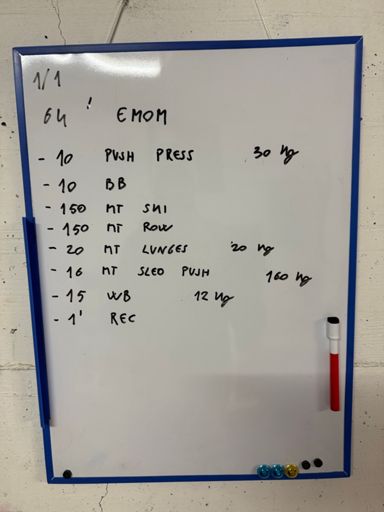 1/1
64' EMOM
- 10 PUSH PRESS 30 Kg
- 10 BB
- 150 MT SKI
- 150 MT ROW
- 20 MT LUNGES 20 Kg
- 16 MT SLED PUSH 160 Kg
- 15 WB 12 Kg
- 1' REC